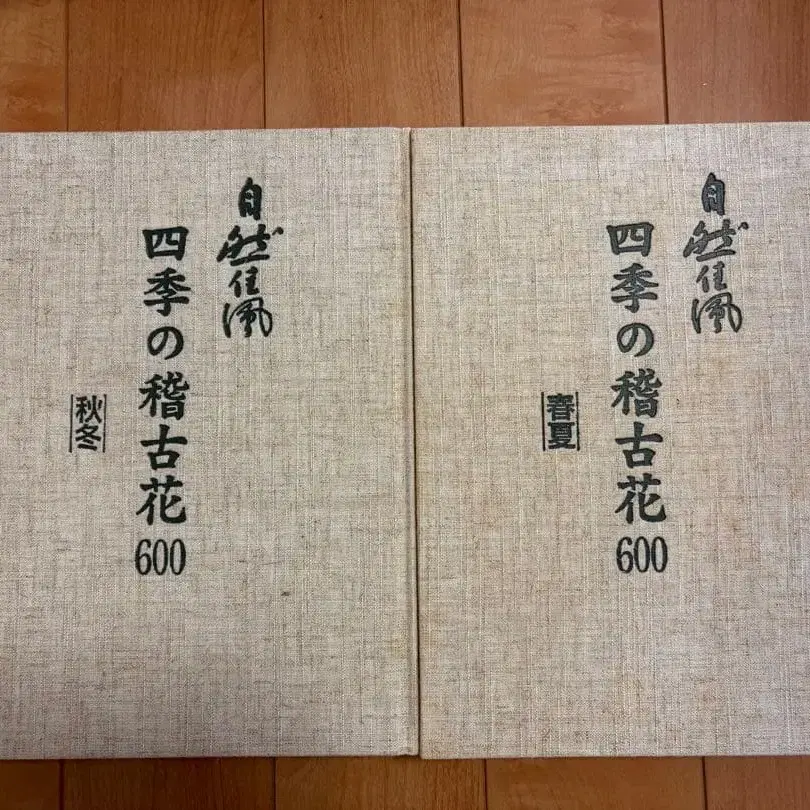 自然佳風
四季の稽古花600
春夏
自然佳風
四季の稽古花600
秋冬